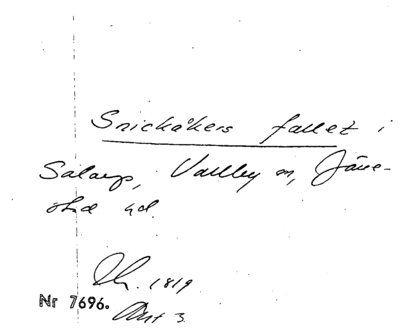 Snickåkers fallet i
Salarp, Valleby sn, Jäne-
ohd ud.
1819
Nr 7696. Ant 3.